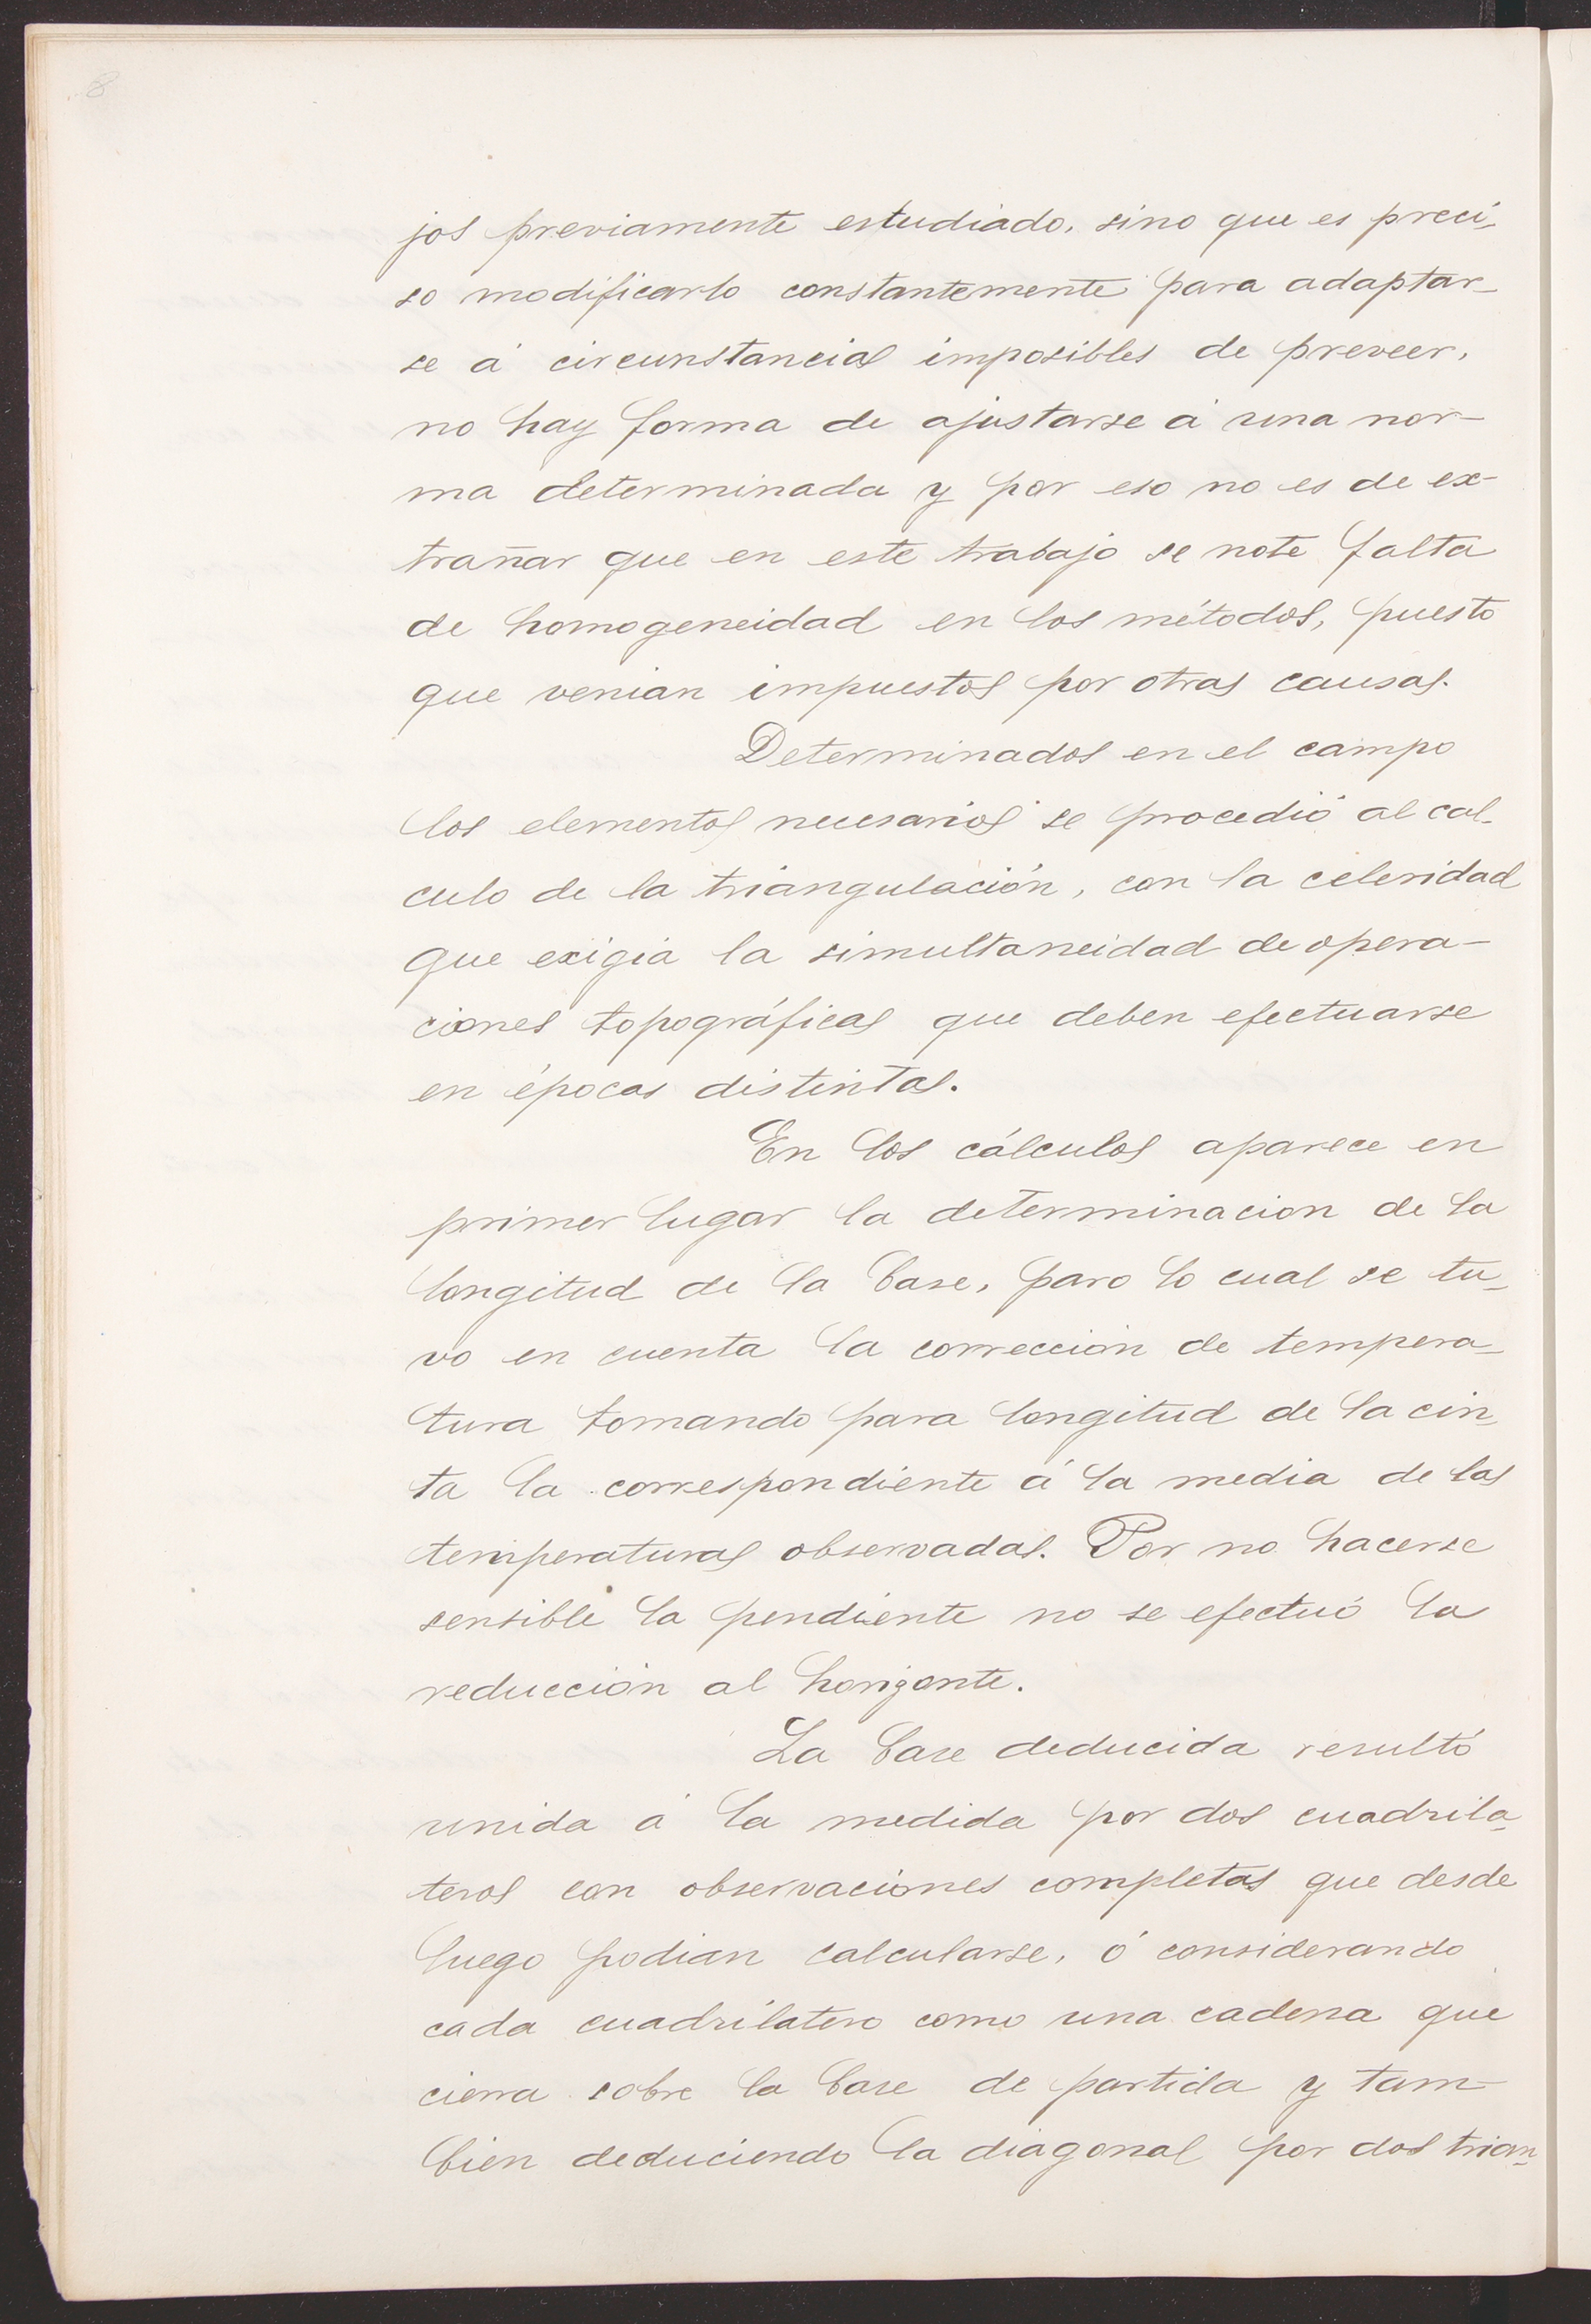 8
jos previamente estudiado, sino que es preci-
so modificarlo constantemente para adaptar-
se á circunstancias imposibles de preveer,
no hay forma de ajustarse á una nor-
ma determinada y por eso no es de ex-
trañar que en este trabajo se note falta
de homogeneidad en los métodos, puesto
que venian impuestos por otras causas.
Determinados en el campo
los elementos necesarios se procedió al cal-
culo de la triangulación, con la celeridad
que exigia la simultaneidad de opera-
ciones topográficas que deben efectuarse
en épocas distintas.
En los cálculos aparece en
primer lugar la determinacion de la
longitud de la base, para lo cual se tu-
vo en cuenta la corrección de tempera-
tura tomando para longitud de la cin-
ta la correspondiente á la media de las
temperaturas observadas. Por no hacerse
sensible la pendiente no se efectuó la
reducción al horizonte.
La base deducida resultó
unida á la medida por dos cuadrila-
teros con observaciones completas que desde
luego podian calcularse, ó considerando
cada cuadrilatero como una cadena que
cierra sobre la base de partida y tam-
bien deduciendo la diagonal por dos trian-